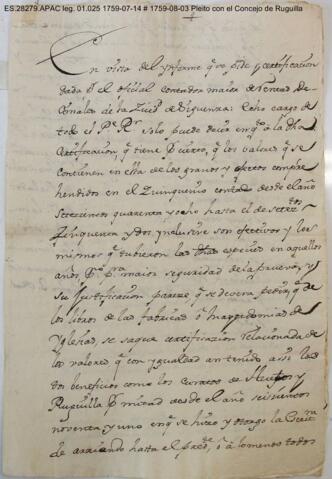 ES.28279.APAC leg. 01.025 1759-07-14 # 1759-08-03 Pleito con el Concejo de Ruguilla
En vista del ynforme que pide y zertificacion
dada pr el oficial contador maior de rentas de
de la Ziud de Siguenza: Echo cargo de
todo el Pe Rr solo puede decir en qto a la dha
Certificacion q tiene pr cierto, q los valores q se
contienen en ella de los granos y efectos compre
hendidos en el Zinquenio contado desde el año
Setecientos quarenta y ocho hasta el de seteztos
Zinquenta y dos ynclusive son efectivos y los
mismos q tubieron las dhas especies en aquellos
años, Po pra maior seguridad de la prueva, y
su justificacion parece q se devera pedir, q de
los libros de las fabricas
Yglesias, se saque certificazion relacionada de
los valores q con ygualdad an tenido assi los
dos beneficios como los Curatos de Huetos y
Ruguilla pr mitad desde el año seiscientos
noventa y uno en q se hizo y otorgo la Escra
de arriendo hasta el preste, o a lo menos todos